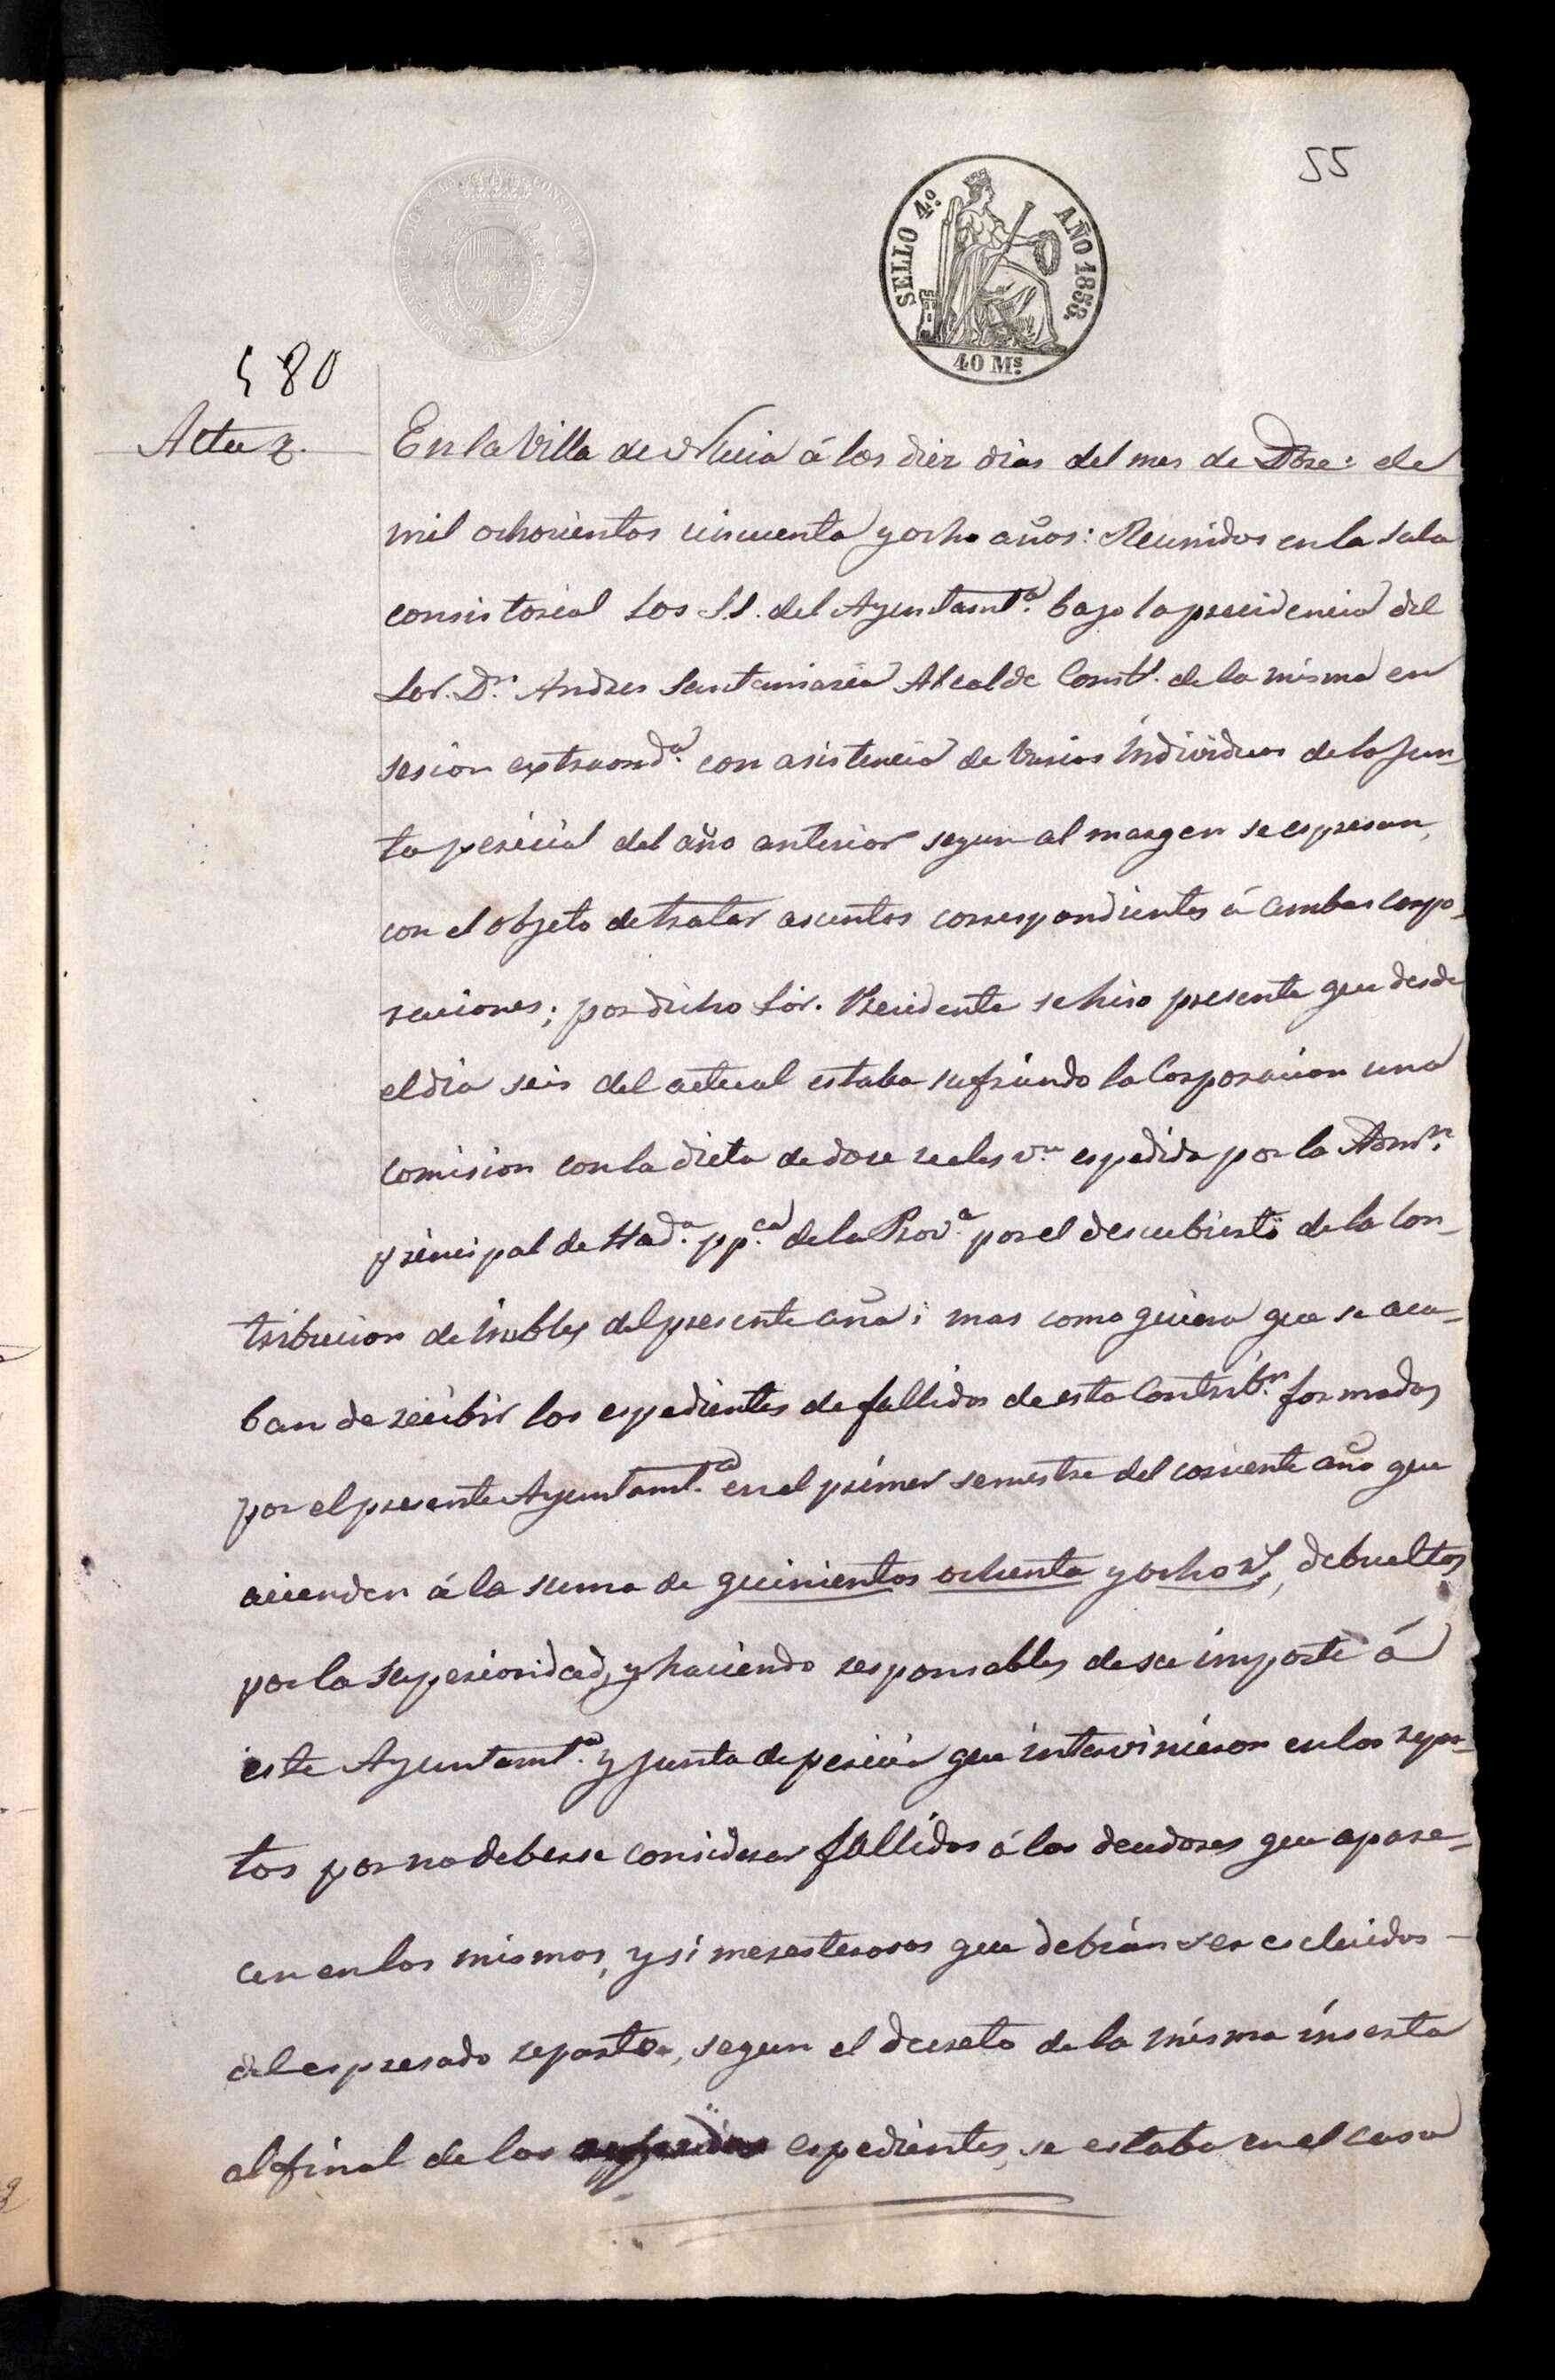 55
SELLO 4.º AÑO 1858.
40 Mˢ
580
Acta
En la Villa de Nucia á los diez dias del mes de Dbre: de
mil ochocientos cincuenta y ocho años: Reunidos en la sala
consistorial los S.S. del Ayuntamtº. bajo la precidencia del
Sor. Dⁿ. Andres Santamaria Alcalde Constl. de la misma en
sesion extraordª. con asistencia de varios individuos de la Jun-
ta pericial del año anterior segun al margen se espresan,
con el objeto de tratar asuntos correspondientes á ambas corpo-
raciones; por dicho Sor. Precidente se hiso presente que desde
el dia seis del actual estaba sufriendo la Corporacion una
comision con la dieta de doce reales vⁿ espedida por la Admⁿ.
principal de Hadª. ppᶜᵃ. de la Provª. por el descubierto de la Con-
tribucion de inebles del presente año; mas como quiera que se aca-
ban de recibir los espedientes de fallidos de esta Contribⁿ. formados
por el presente Ayuntamtº. en el primer semestre del corriente año que
acienden á la suma de quinientos ochenta y ocho rˢ, debueltos
por la superioridad, y haciendo responsables de su importe á
este Ayuntamtº. y junta de pericia que intervinieron en los repar-
tos por no deberse considerar fallidos á los deudores que apare-
cen en los mismos, y si menesterosos que debian ser escluidos
del espresado reparto, segun el decreto de la misma inserto
al final de los espedientes, se estaba en el caso